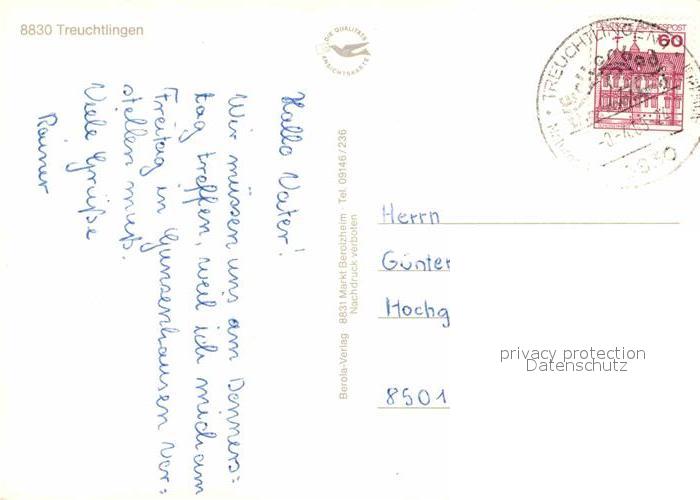 8830 Treuchtlingen
DIE QUALITÄTS
ANSICHTSKARTE
Hallo Vater!
Wir müssen uns am Donners=
tag treffen, weil ich mich am
Freitag in Gunzenhausen vor=
stellen muß.
Viele Grüße
Rainer
Berola-Verlag 8831 Markt Berolzheim · Tel. 09146/236
Nachdruck verboten
DEUTSCHE BUNDESPOST
60
TREUCHTLINGEN
8830
Herrn
Günter
Hochg
8501
privacy protection
Datenschutz